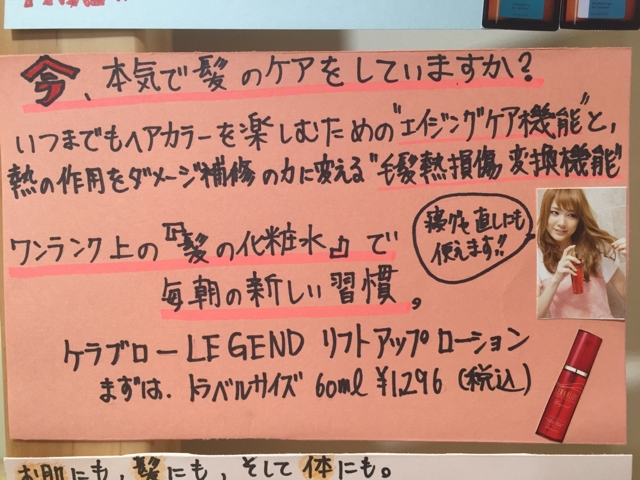 今、本気で髪のケアをしていますか？
いつまでもヘアカラーを楽しむための"エイジングケア機能"と、
熱の作用をダメージ補修の力に変える"毛髪熱損傷変換機能"
寝グセ直しにも
使えます!!
ワンランク上の『髪の化粧水』で
毎朝の新しい習慣。
ケラブロー LEGEND リフトアップローション
まずは、トラベルサイズ 60ml ¥1,296 (税込)
お肌にも、髪にも、そして体にも。